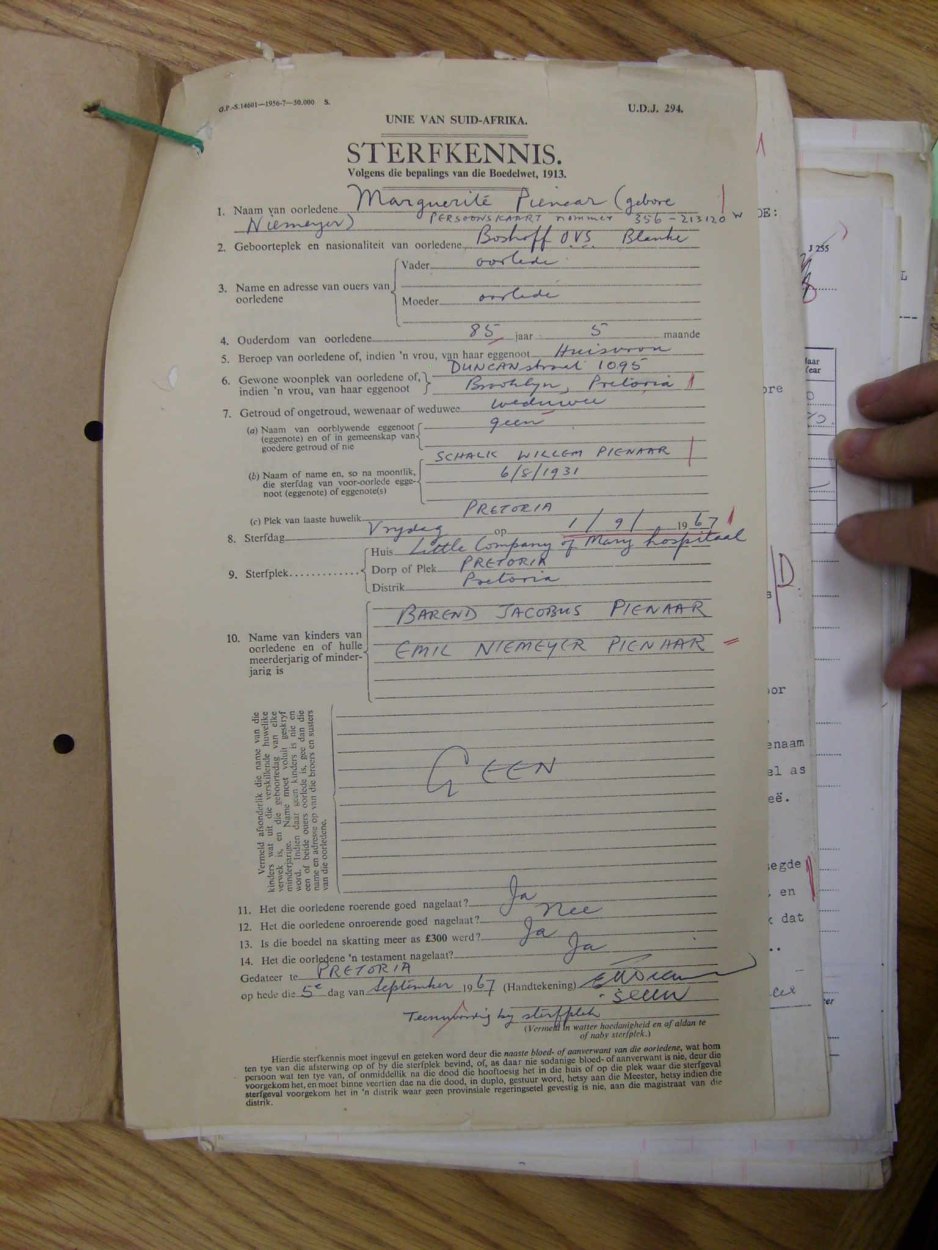 G.P.-S.14601—1956-7—50.000 S.
U.D.J. 294.
UNIE VAN SUID-AFRIKA.
STERFKENNIS.
Volgens die bepalings van die Boedelwet, 1913.
1. Naam van oorledene Marguerite Pienaar (gebore
Niemeyer) PERSOONSKAART nommer 356-213120 W
2. Geboorteplek en nasionaliteit van oorledene Boshoff OVS. Blanke
3. Name en adresse van ouers van oorledene
Vader oorlede
Moeder oorlede
4. Ouderdom van oorledene 85 jaar 5 maande
5. Beroep van oorledene of, indien 'n vrou, van haar eggenoot Huisvrou
6. Gewone woonplek van oorledene of, indien 'n vrou, van haar eggenoot
DUNCANstraat 1095
Brooklyn, Pretoria
7. Getroud of ongetroud, wewenaar of weduwee weduwee
(a) Naam van oorblywende eggenoot (eggenote) en of in gemeenskap van goedere getroud of nie
geen
(b) Naam of name en, so na moontlik, die sterfdag van voor-oorlede eggenoot (eggenote) of eggenote(s)
SCHALK WILLEM PIENAAR
6/8/1931
(c) Plek van laaste huwelik PRETORIA
8. Sterfdag Vrydag op 1/9/ 1967
9. Sterfplek
Huis Little Company of Mary hospitaal
Dorp of Plek PRETORIA
Distrik Pretoria
10. Name van kinders van oorledene en of hulle meerderjarig of minderjarig is
BAREND JACOBUS PIENAAR
EMIL NIEMEYER PIENAAR
Vermeld afsonderlik die name van die
kinders wat uit die verskillende huwelike
verwek is, en die geboortedag van elke
minderjarige. Name moet voluit geskryf
word. Indien daar geen kinders is nie en
een of beide ouers oorlede is, gee dan die
name en adresse op van die broers en susters
van die oorledene.
GEEN
11. Het die oorledene roerende goed nagelaat? Ja
12. Het die oorledene onroerende goed nagelaat? Nee
13. Is die boedel na skatting meer as £300 werd? Ja
14. Het die oorledene 'n testament nagelaat? Ja
Gedateer te PRETORIA
op hede die 5e dag van September 1967 (Handtekening)
Seun
Teenwoordig by sterfplek
(Vermeld in watter hoedanigheid en of aldan te
of naby sterfplek.)
Hierdie sterfkennis moet ingevul en geteken word deur die naaste bloed- of aanverwant van die oorledene, wat hom
ten tye van die afsterwing op of by die sterfplek bevind, of, as daar nie sodanige bloed- of aanverwant is nie, deur die
persoon wat ten tye van, of onmiddellik na die dood die hooftoesig het in die huis of op die plek waar die sterfgeval
voorgekom het, en moet binne veertien dae na die dood, in duplo, gestuur word, hetsy aan die Meester, hetsy indien die
sterfgeval voorgekom het in 'n distrik waar geen provinsiale regeringsetel gevestig is nie, aan die magistraat van die
distrik.
DE:
J 255
L
Jaar
Year
ore
D.
oor
enaam
el as
eë.
egde
en
dat